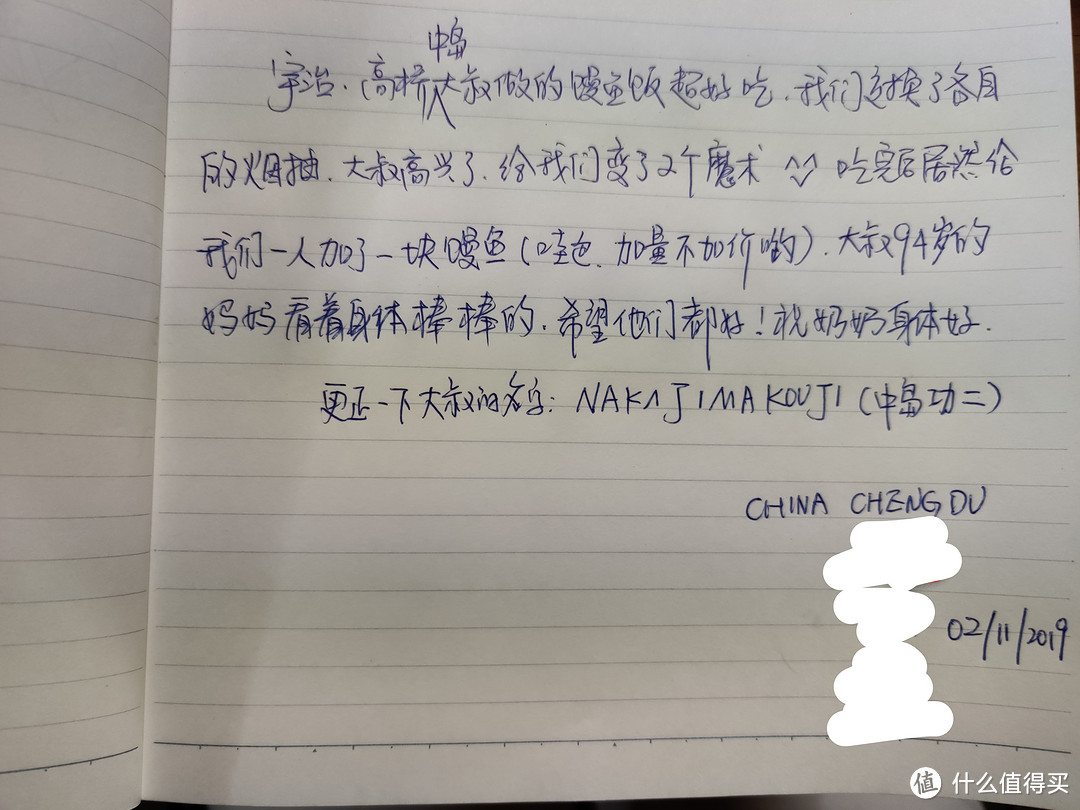 中島
宇治.高桥大叔做的鳗鱼饭超好吃.我们交换了各自
的烟抽.大叔高兴了.给我们变了2个魔术 ^^ 吃完后居然给
我们一人加了一块鳗鱼(哇色.加量不加价哟).大叔94岁的
妈妈看着身体棒棒的.希望他们都好!祝奶奶身体好.
更正一下大叔的名字: NAKAJIMA KOUJI (中島功二)
CHINA CHENGDU
02/11/2019
值 什么值得买